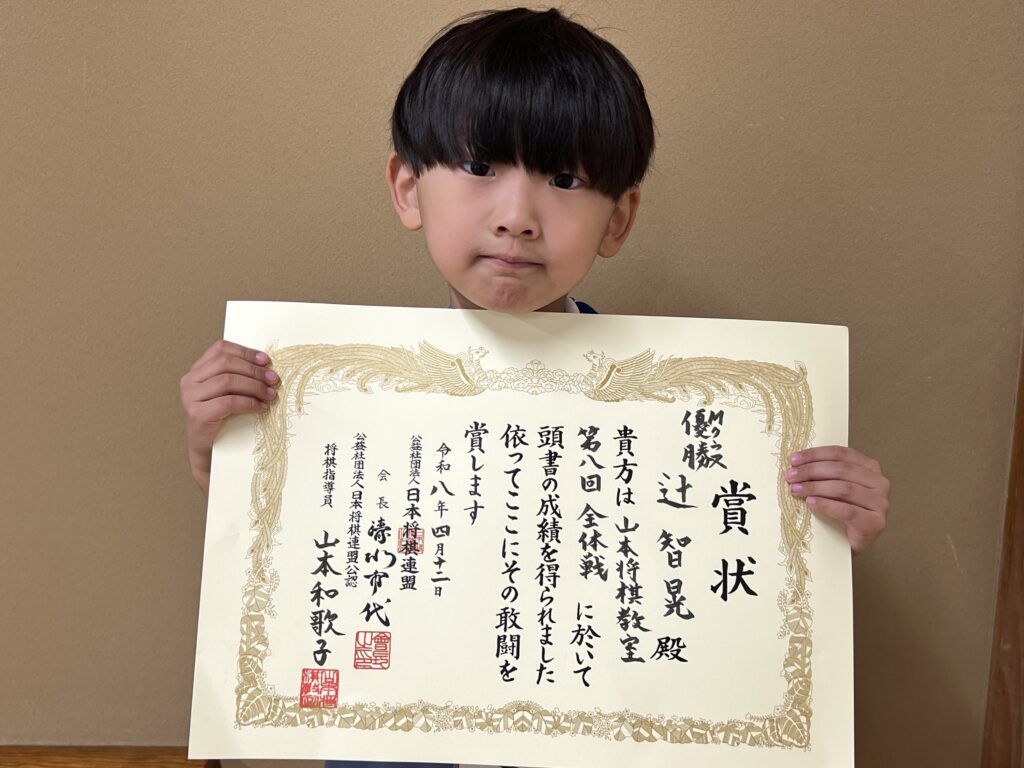 賞状
Mクラス
優勝
辻智晃殿
貴方は山本将棋教室
第八回全休戦に於いて
頭書の成績を得られました
依ってここにその敢闘を
賞します
令和八年四月十二日
公益社団法人日本将棋連盟
会長清水市代
公益社団法人日本将棋連盟公認
将棋指導員山本和歌子